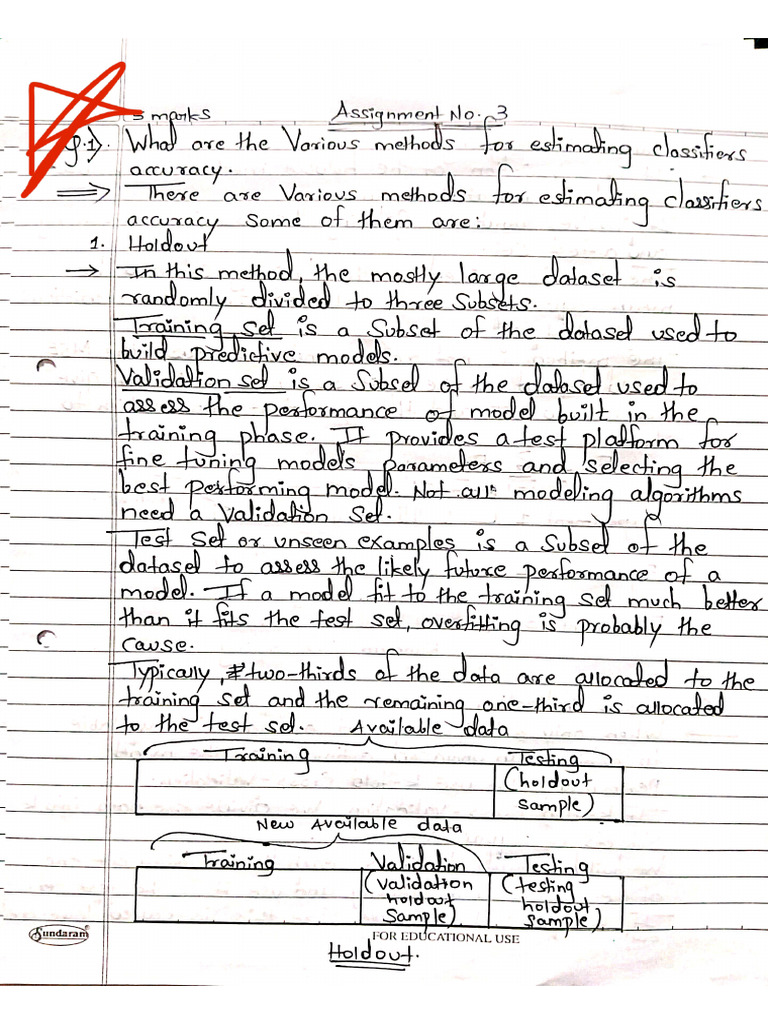 5 marks Assignment No. 3
Q.1) What are the Various methods for estimating classifiers
accuracy.
⇒ There are Various methods for estimating classifiers
accuracy some of them are:
1. Holdout
→ In this method, the mostly large dataset is
randomly divided to three Subsets.
Training set is a Subset of the dataset used to
build predictive models.
Validation set is a Subset of the dataset used to
assess the performance of model built in the
training phase. It provides a test platform for
fine tuning model's parameters and selecting the
best performing model. Not all modeling algorithms
need a Validation Set.
Test Set or unseen examples is a Subset of the
dataset to assess the likely future performance of a
model. If a model fit to the training set much better
than it fits the test set, overfitting is probably the
cause.
Typically, two-thirds of the data are allocated to the
training set and the remaining one-third is allocated
to the test set. Available data
Training Testing
(holdout
sample)
New Available data
Training Validation Testing
(validation (testing
holdout holdout
sample) sample)
Sundaram FOR EDUCATIONAL USE
Holdout.